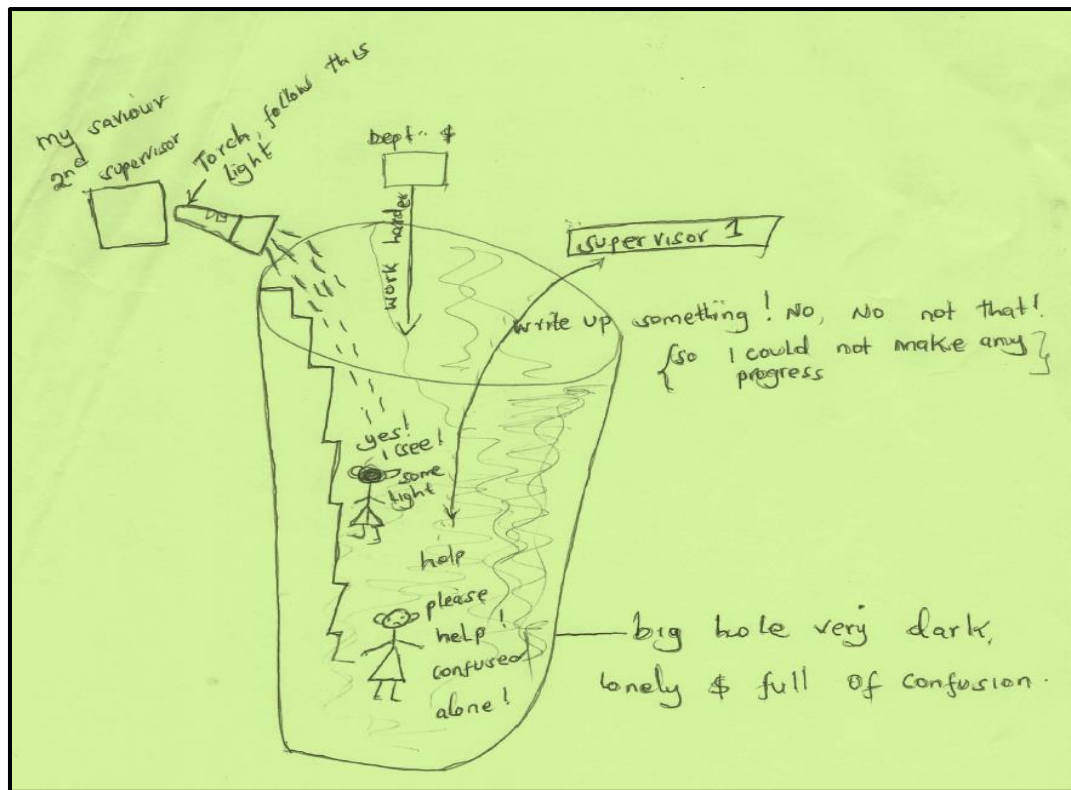 my saviour
2nd supervisor
Torch, follow this
light
Dept.. $
work harder
supervisor 1
write up something! No, No not that!
{so I could not make any}
progress
yes!
I see!
some
light
help
please
help!
confused
alone!
big hole very dark,
lonely $ full of confusion.